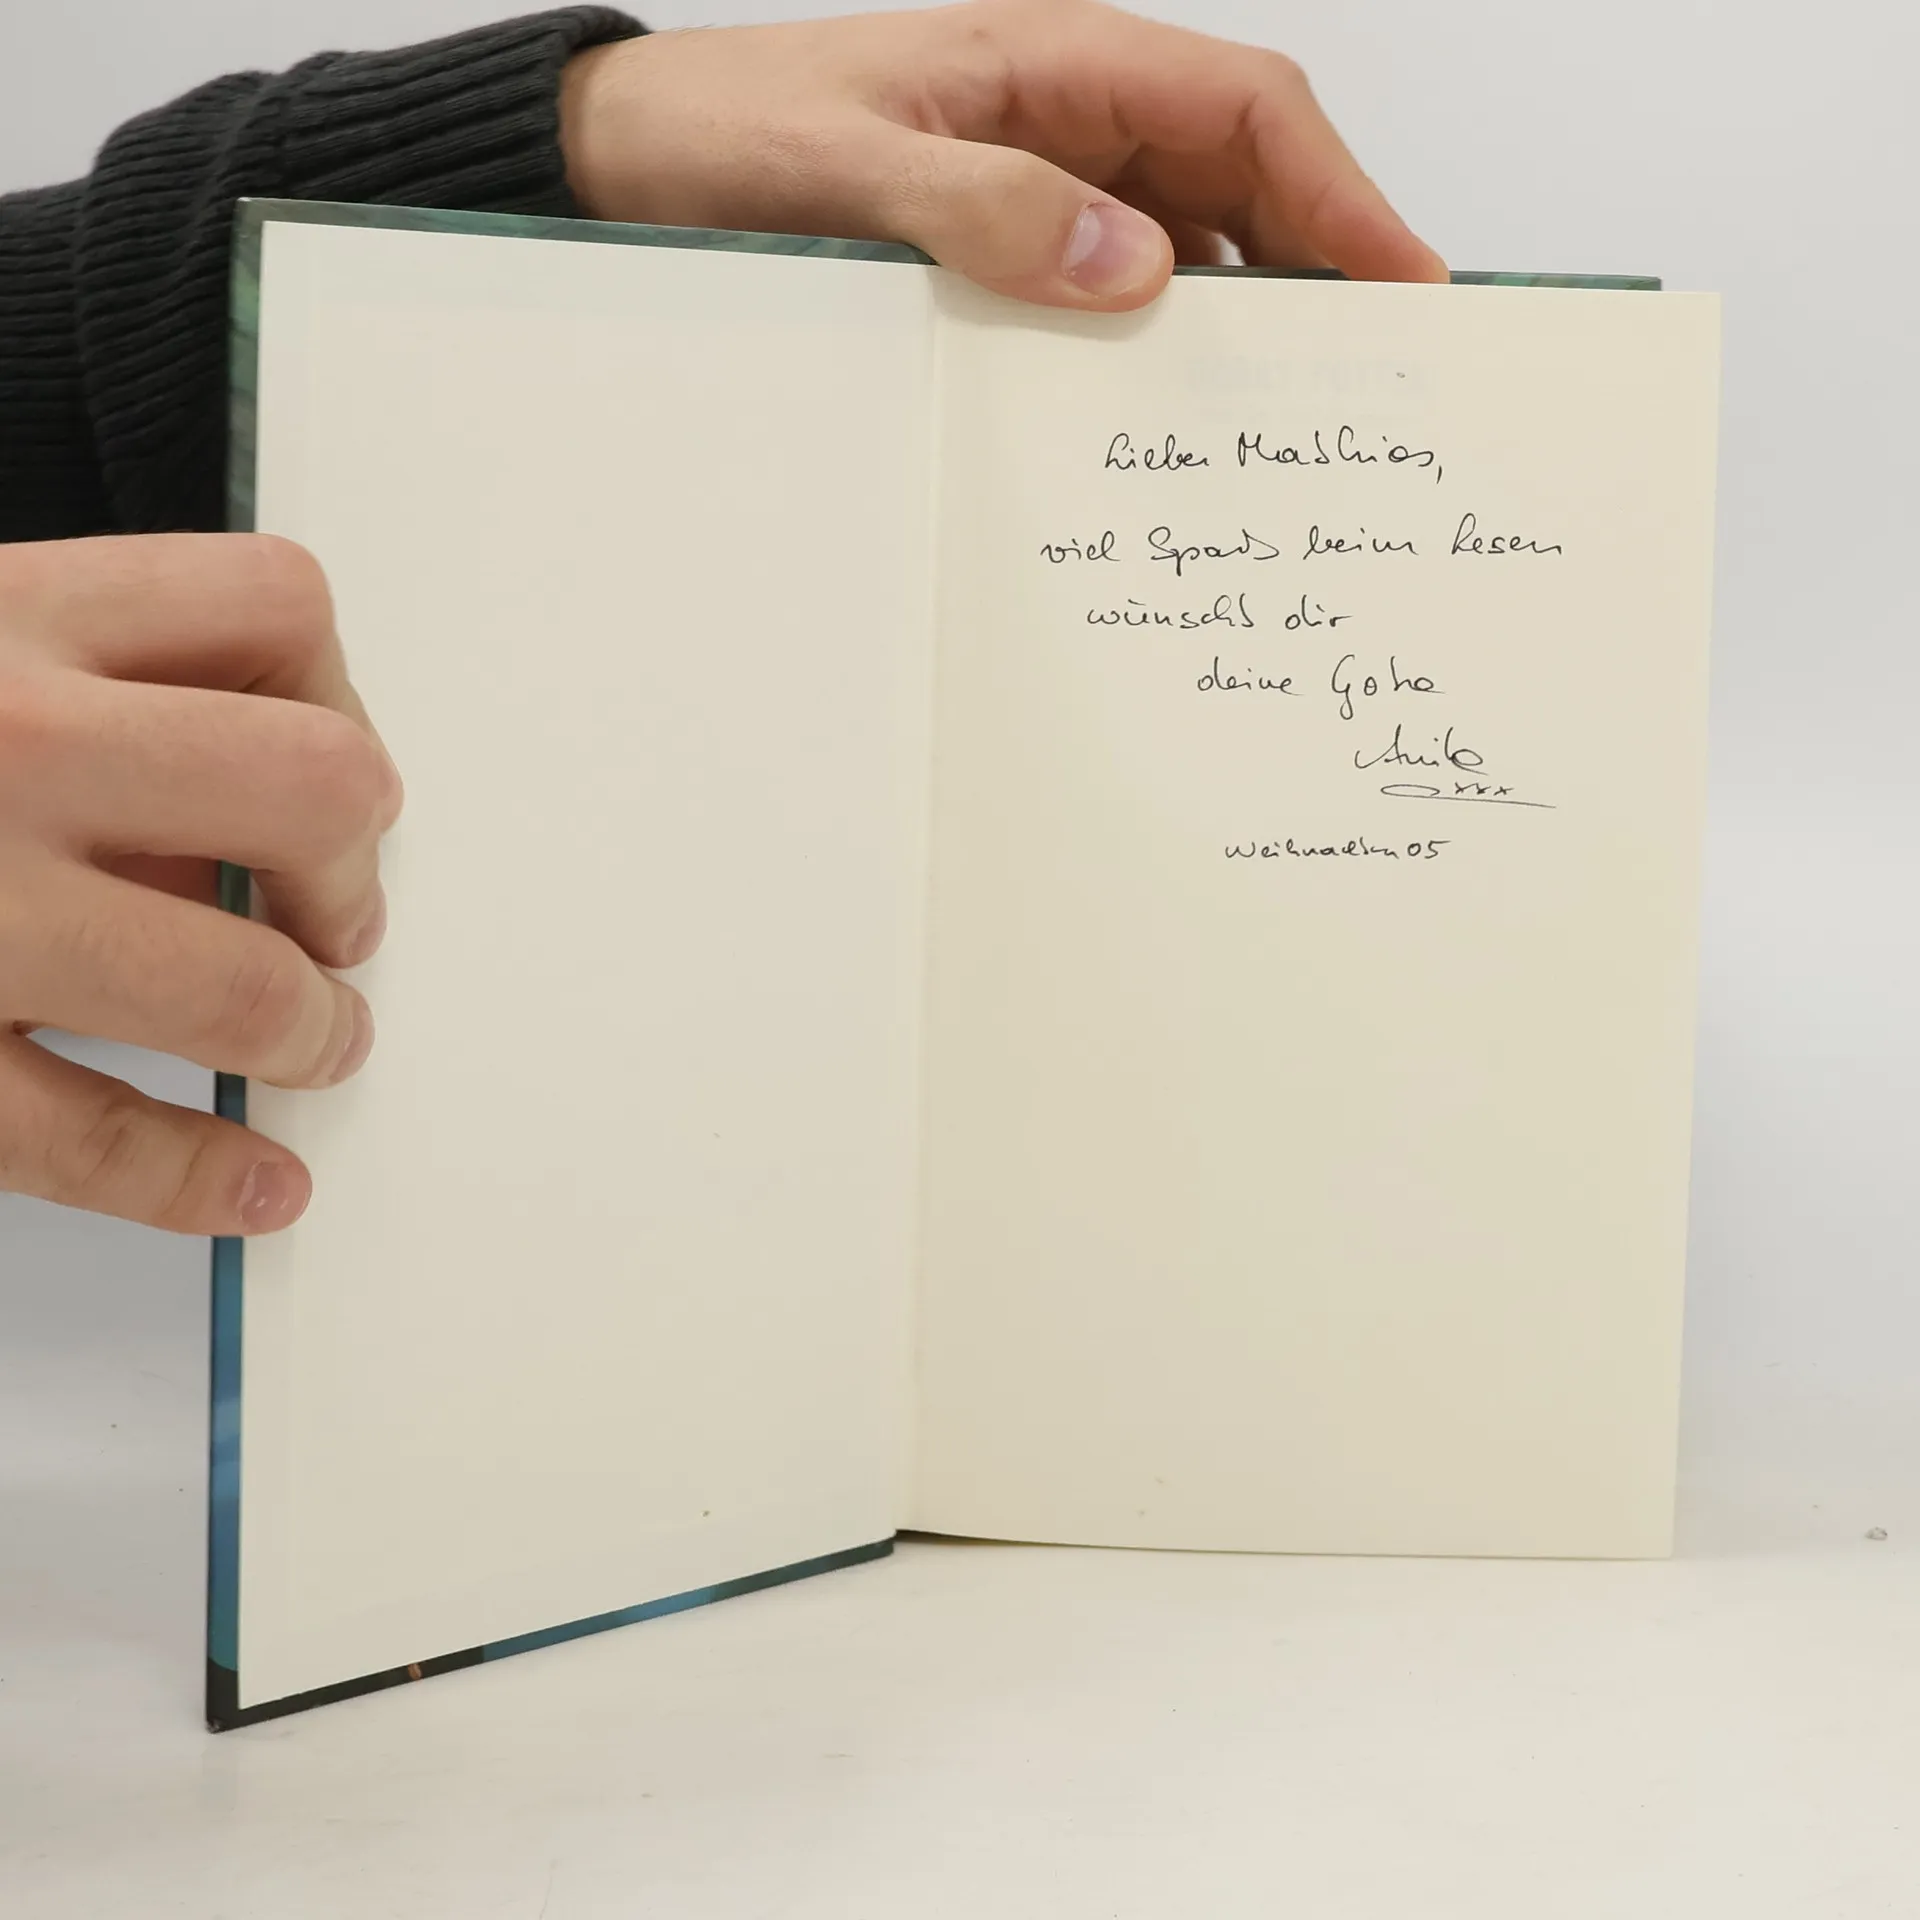 Lieber Mathias,
viel Spass beim Lesen
wünscht dir
deine Gote
Anite
xxx
Weihnachten 05